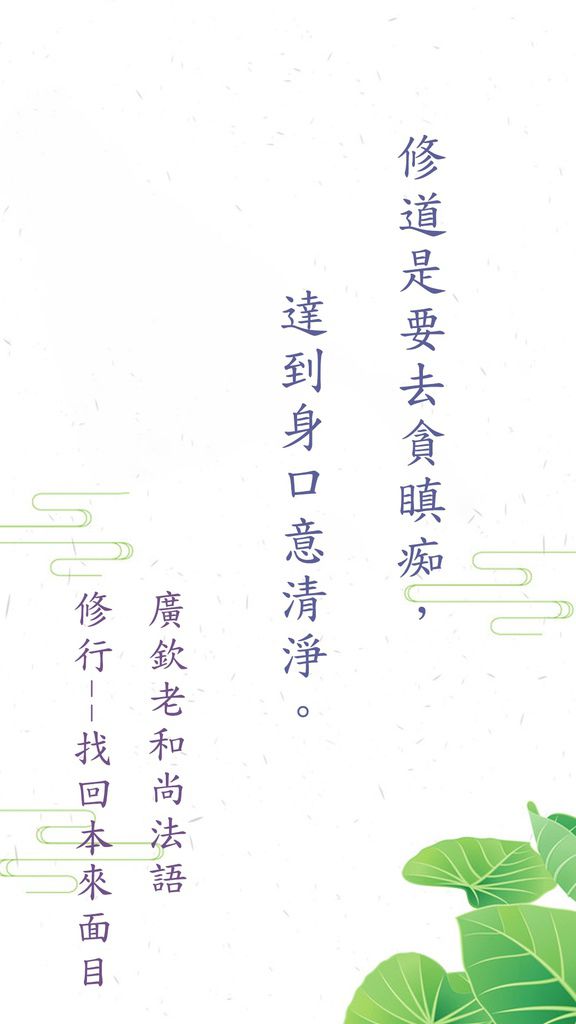 修道是要去貪瞋痴，
達到身口意清淨。
廣欽老和尚法語
修行--找回本來面目